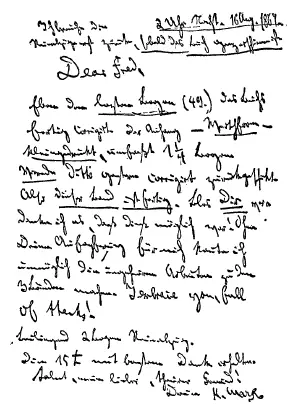 Ich brauche die 2 Uhr Nacht. 16 Aug. 1867.
zurück, sobald das Buch ganz erschienen ist
Dear Fred,
Eben den letzten Bogen (49.) des Buchs
fertig corrigirt. Der Anhang — Werthform —
kleingedruckt, umfasst 1 1/4 Bogen.
Vorrede ditto gestern corrigirt zurückgeschickt.
Also dieser Band ist fertig. Blos Dir ver
danke ich es, dass diess möglich war! Ohne
Deine Aufopfrung für mich konnte ich
unmöglich die ungeheuren Arbeiten zu den
3 Bänden machen. I embrace you, full
of thanks!
Beiliegend 2 Bogen Reinabzug.
Die 15 £ mit bestem Dank erhalten.
Salut, mein lieber, theurer Freund!
Dein K. Marx